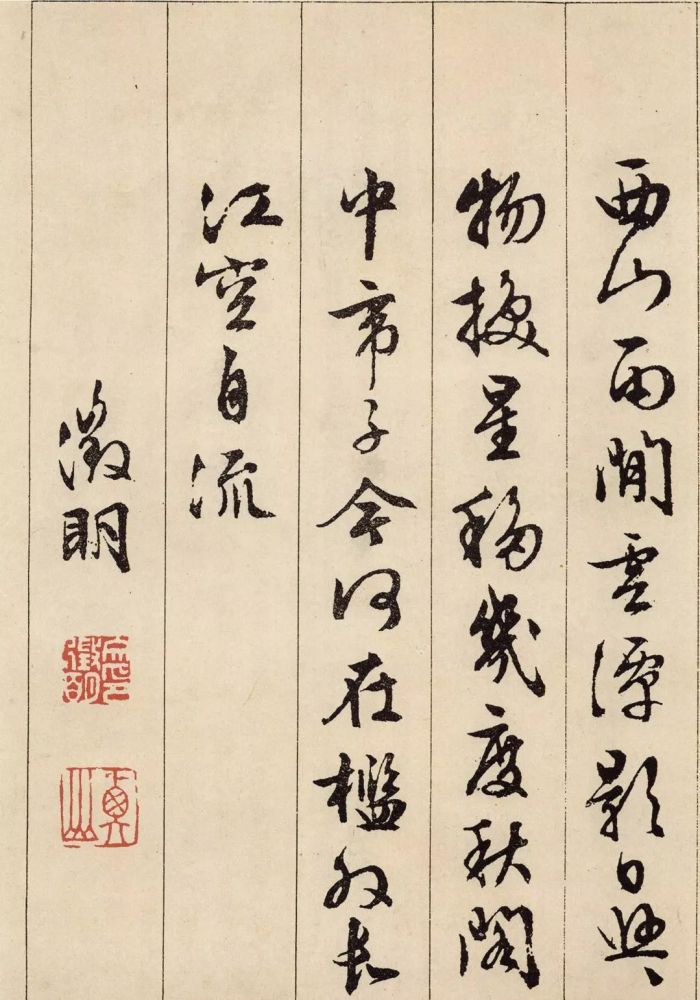 西山雨閒雲潭影日悠〻
物換星移幾度秋閣
中帝子今何在檻外長
江空自流
徵明